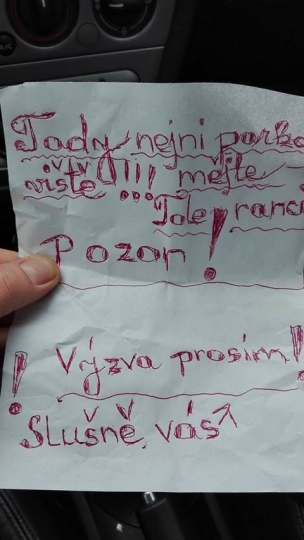 Tady nejni parko
viště !!! mějte
Tole ranci
Pozor !
! Výzva prosím!
Slušně, vás